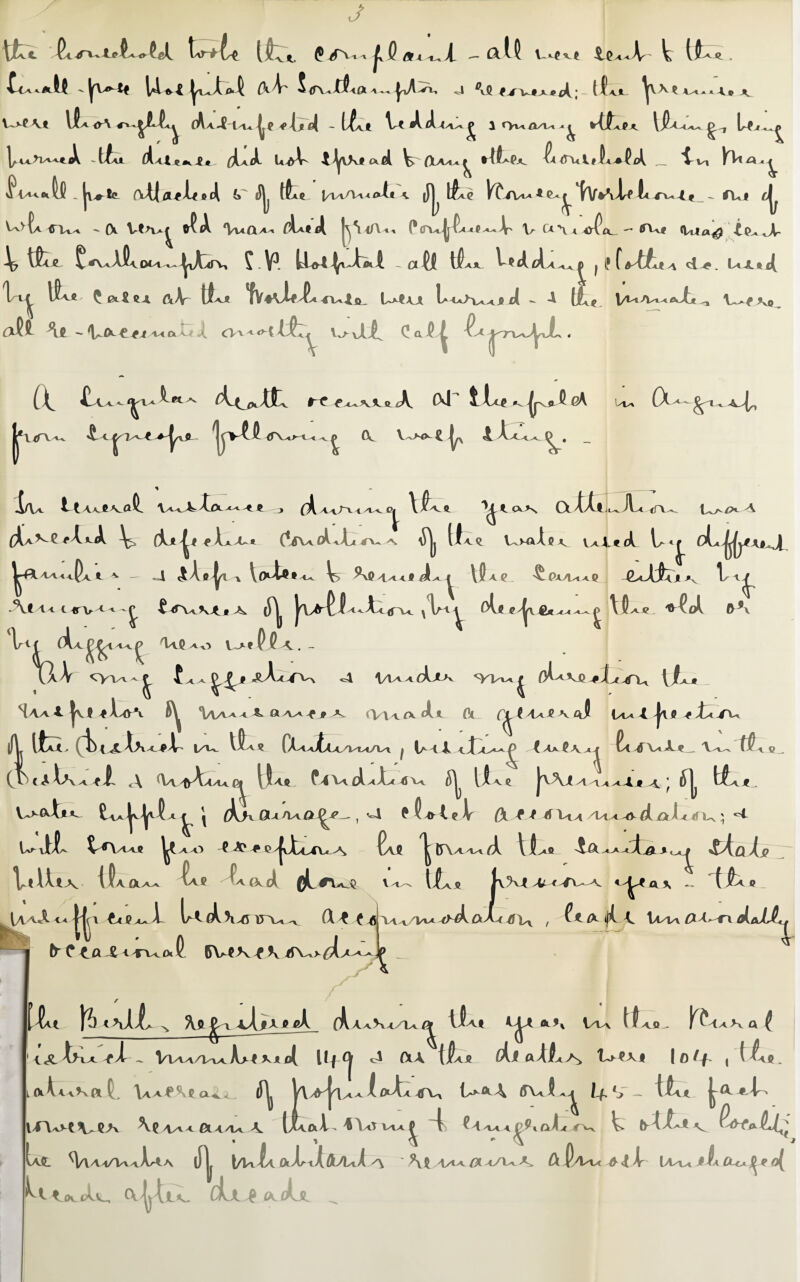 3
the household took the complaint – all were sent to the
Small-pox Hospital at Southampton, & recovered; the premises
were thoroughly disinfected – the bedding & many other things being
burned – the disease did not spread to any other household – In May
Small-pox attacked 2 of the inmates of the Romsey Workhouse – one of
whom – a very old man died from Consumption & another – one was sent
to the Southampton I.D. Hospital – all the bedding, clothes &c. used
by the cases at the Workhouse were burned – & the inmates were
all re-vaccinated mostly with Calf lymph.
A singular death occurred at Sherfield in August,
from syncope following a wasp sting. –
In several instances, during the year attention was
directed to defective conditions of the water used by different
families – & steps taken to remedy the same either by
removing sources of pollution, by deepening the old or
by digging new wells. –
At my suggestion & under my direction the
Inspector of Nuisances made a general inspection
of the District in the Autumn, visiting every house in the
District & noting the condition of the premises; of the
water supply; drainage, & closet accommodation; &
with some few exceptions he found the sanitary state
better than he had done in the previous year – the
insufficient bedroom accommodation, leads unavoidably
to occasional overcrowding –
The Births registered during the year in the Rural
District – numbered 149 & as the deaths were 104, the
natural increase of population was only 45 – the fact
however remains that owing to emigration to other localities
the number of inhabitants remains almost unchanged
decade after decade –